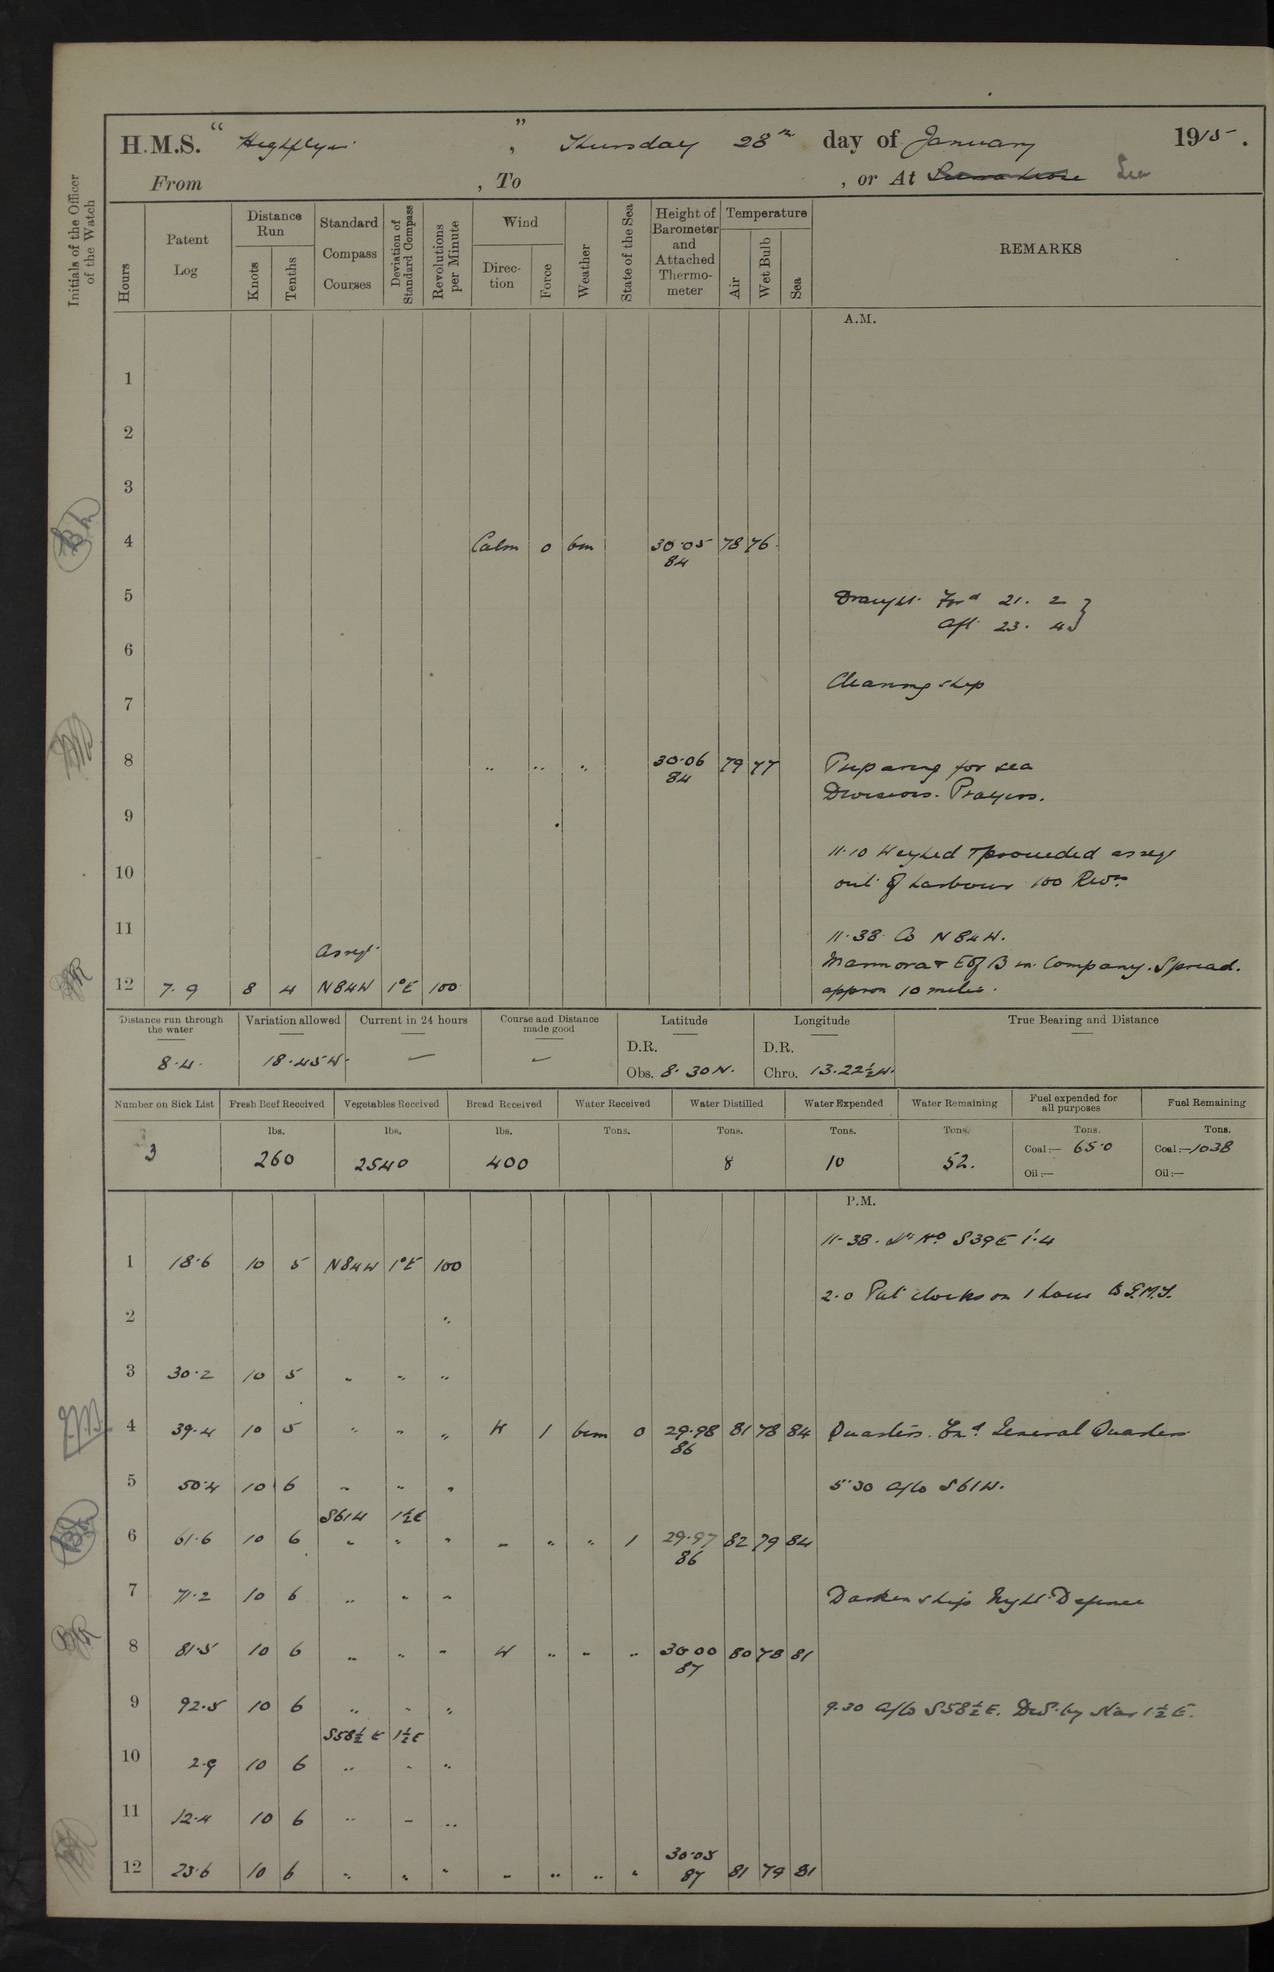 H.M.S. " Highflyer " , Thursday 28th day of January 1915 .
From , To , or At Sierra Leone Sea
Initials of the Officer of the Watch
Hours
Patent Log
Distance Run
Knots
Tenths
Standard Compass Courses
Deviation of Standard Compass
Revolutions per Minute
Wind
Direction
Force
Weather
State of the Sea
Height of Barometer and Attached Thermometer
Temperature
Air
Wet Bulb
Sea
REMARKS
A.M.
1
2
3
4 Calm 0 bm 30·05 78 76
84
5 Draught Ford 21. 2 }
Aft 23. 4
6
Cleaning ship
7
8 " " " 30·06 79 77 Preparing for sea
84
Divisions. Prayers.
9
11·10 Weighed & proceeded as req
10 out of harbour 100 Revs
11 11·38 Co N84W.
as req. Marmora & E of B in Company. Spread.
12 7·9 8 4 N84W 1°E 100 approx 10 miles.
Distance run through the water
Variation allowed
Current in 24 hours
Course and Distance made good
Latitude
Longitude
True Bearing and Distance
D.R. D.R.
8·4 18·45W. — — Obs. 8·30N. Chro. 13·22½W.
Number on Sick List
Fresh Beef Received
Vegetables Received
Bread Received
Water Received
Water Distilled
Water Expended
Water Remaining
Fuel expended for all purposes
Fuel Remaining
lbs. lbs. lbs. Tons. Tons. Tons. Tons. Tons. Tons.
3 260 2540 400 8 10 52. Coal:— 65·0 Coal:—1038
Oil:— Oil:—
P.M.
11·38. S39E 1'·4
1 18·6 10 5 N84W 1°E 100
2·0 Put clocks on 1 hour to G.M.T.
2 "
3 30·2 10 5 " " "
4 39·4 10 5 " " " W 1 bcm 0 29·98 81 78 84 Quarters. Exd General Quarters
86
5 50·4 10 6 " " " 5·30 a/co S61W.
S61W 1½E
6 61·6 10 6 " " " " " " 1 29·97 82 79 84
86
7 71·2 10 6 " " " Darken ship Night Defence
8 81·5 10 6 " " " W " " " 30·00 80 78 81
87
9 92·5 10 6 " " " 9·30 a/co S58½E. Dev. by Nav 1½E.
S58½E 1½E
10 2·9 10 6 " " "
11 12·4 10 6 " " "
12 23·6 10 6 " " " " " " " 30·05 81 79 81
87